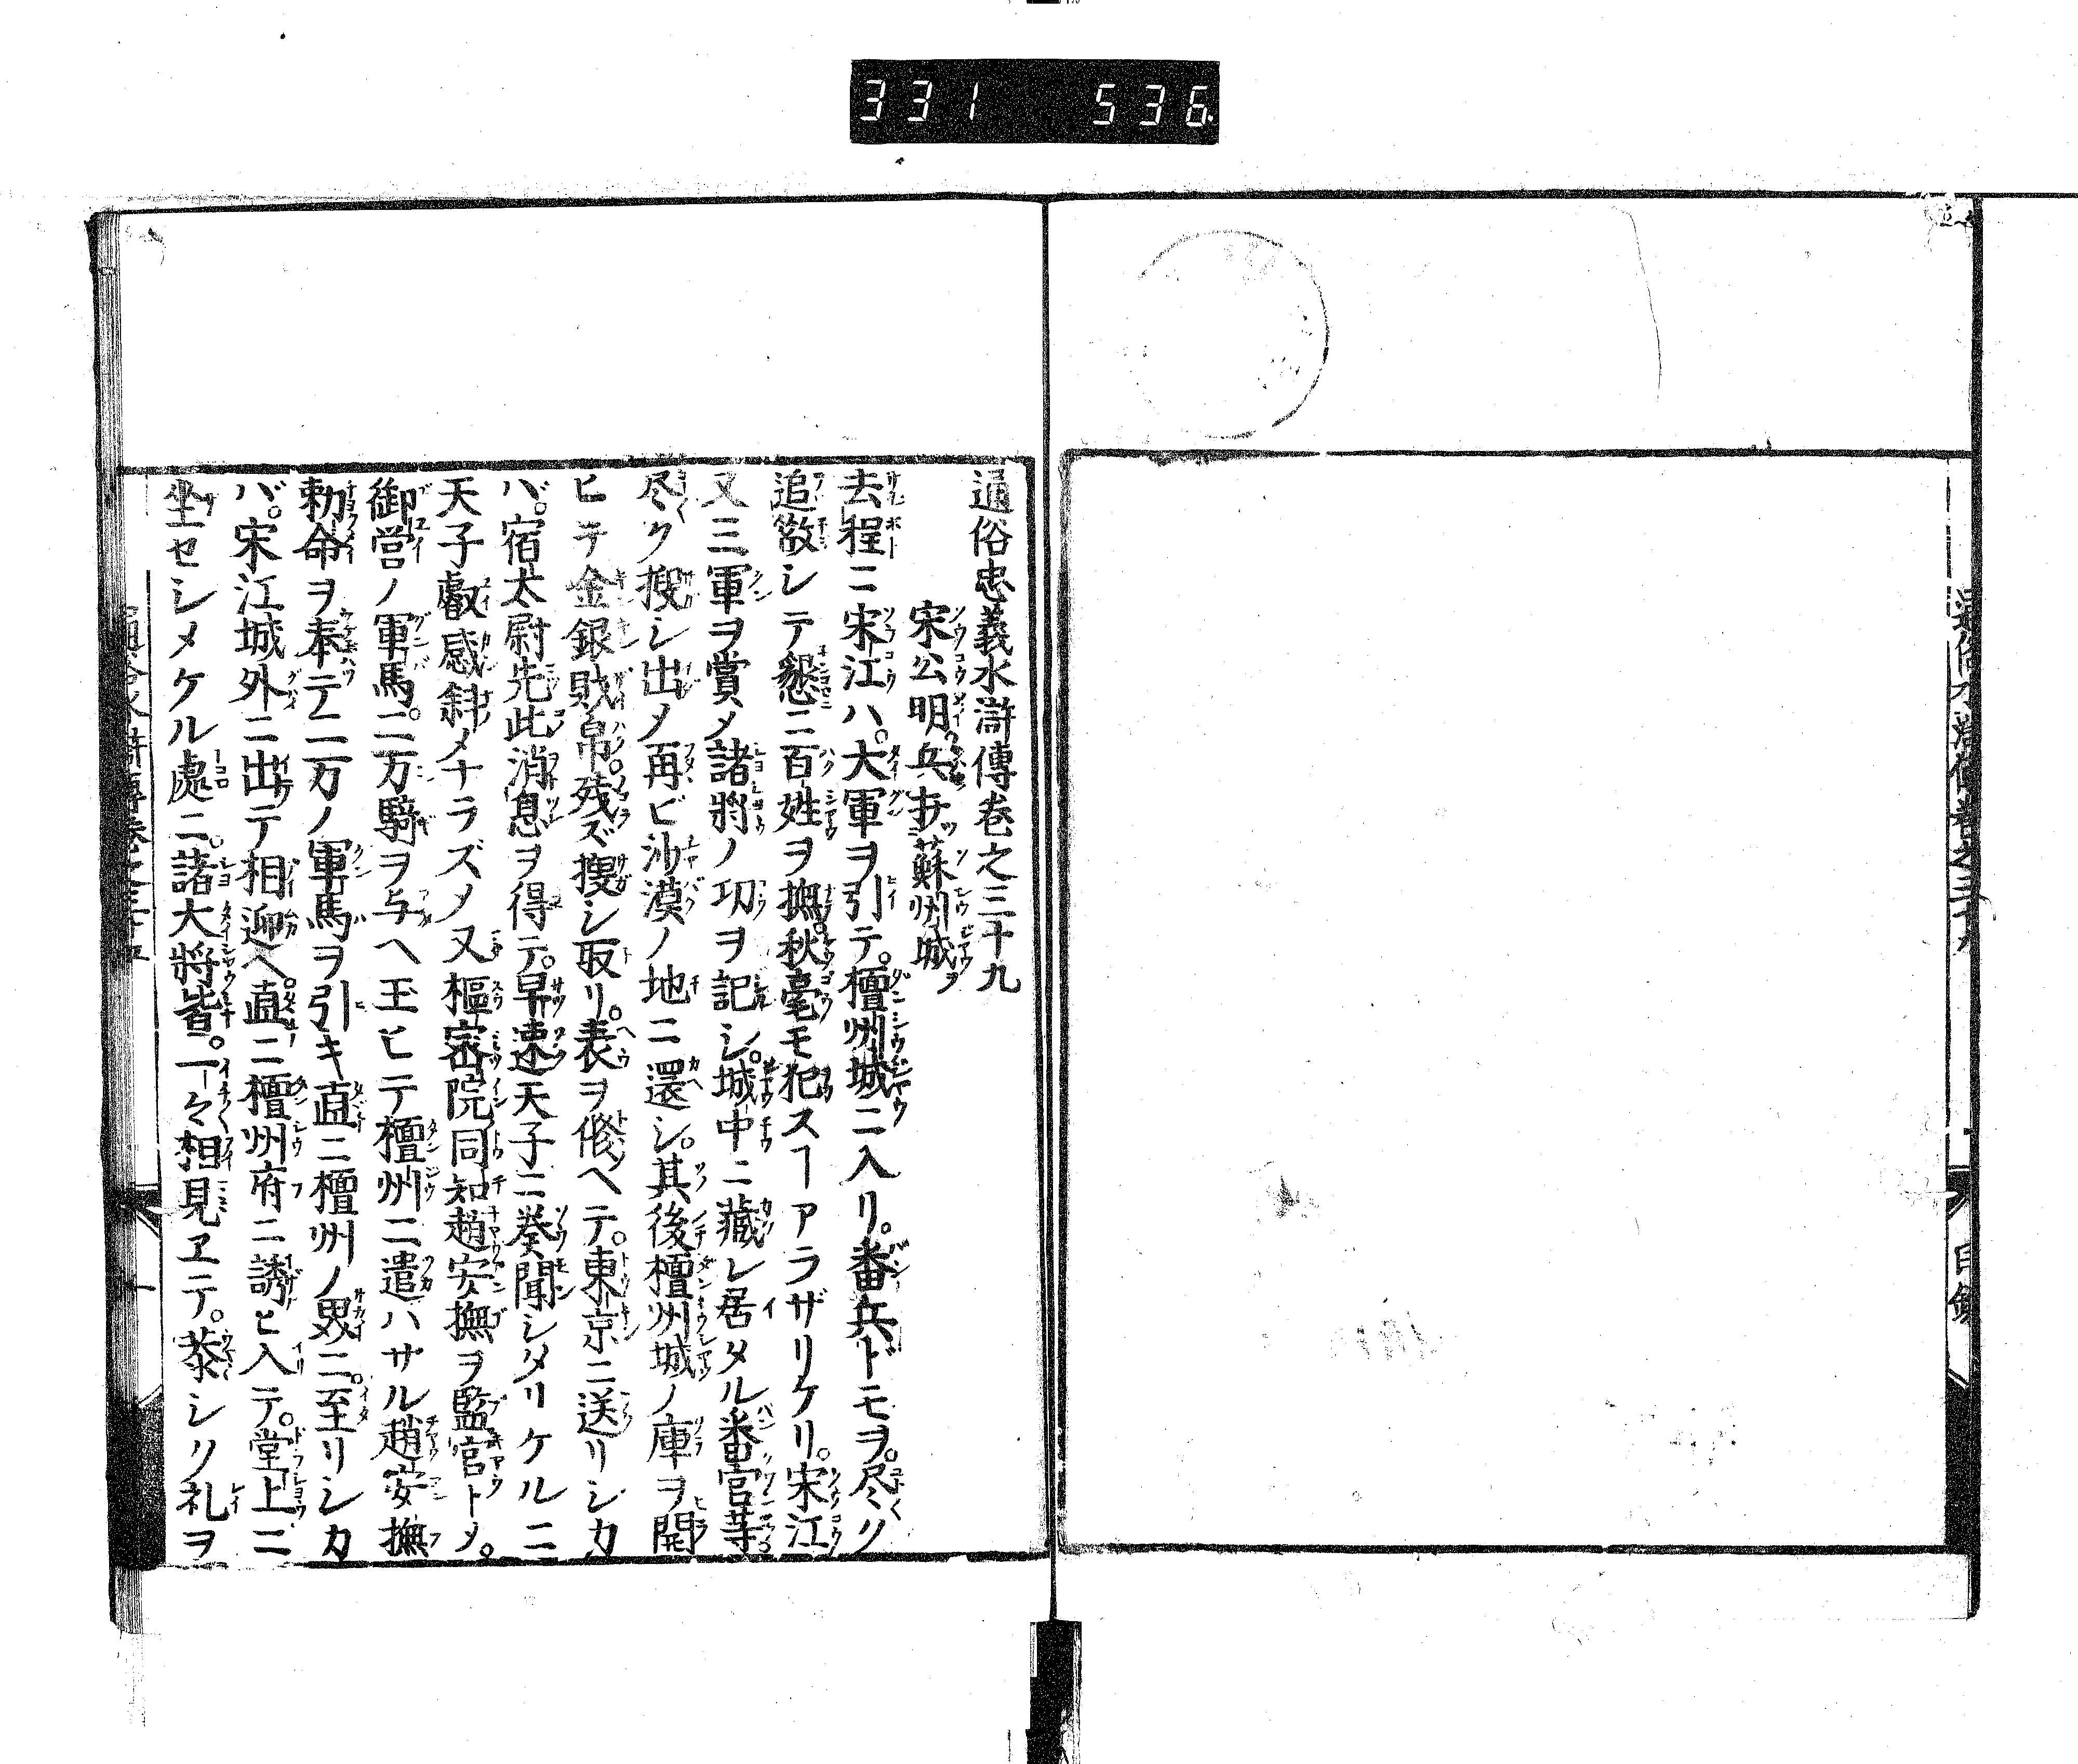 331 536
通俗忠義水滸傳卷之三十九
宋公明兵打蘇州城ヲ
去程ニ宋江ハ。大軍ヲ引テ。檀州城ニ入リ。番兵ドモヲ。尽ク
追散シテ懇ニ百姓ヲ撫。秋毫モ犯スヿアラザリケリ。宋江
又三軍ヲ賞メ諸將ノ功ヲ記シ。城中ニ藏レ居タル番官等
尽ク搜シ出メ再ビ沙漠ノ地ニ還シ。其後檀州城ノ庫ヲ開
ヒテ金銀財帛。残ズ搜シ取リ。表ヲ修ヘテ。東京ニ送リシカ
バ。宿太尉先此消息ヲ得テ。早速天子ニ奏聞シタリケルニ
天子叡感斜メナラズメ又樞密院同知趙安撫ヲ監官トメ。
御営ノ軍馬。二万騎ヲ与ヘ玉ヒテ檀州ニ遣ハサル趙安撫
勅命ヲ奉テ二万ノ軍馬ヲ引キ直ニ檀州ノ界ニ。至リシカ
バ。宋江城外ニ出テ相迎ヘ。直ニ檀州府ニ誘ヒ入テ。堂上ニ
坐セシメケル處ニ。諸大將皆。一々相見ヱテ。恭シク礼ヲ